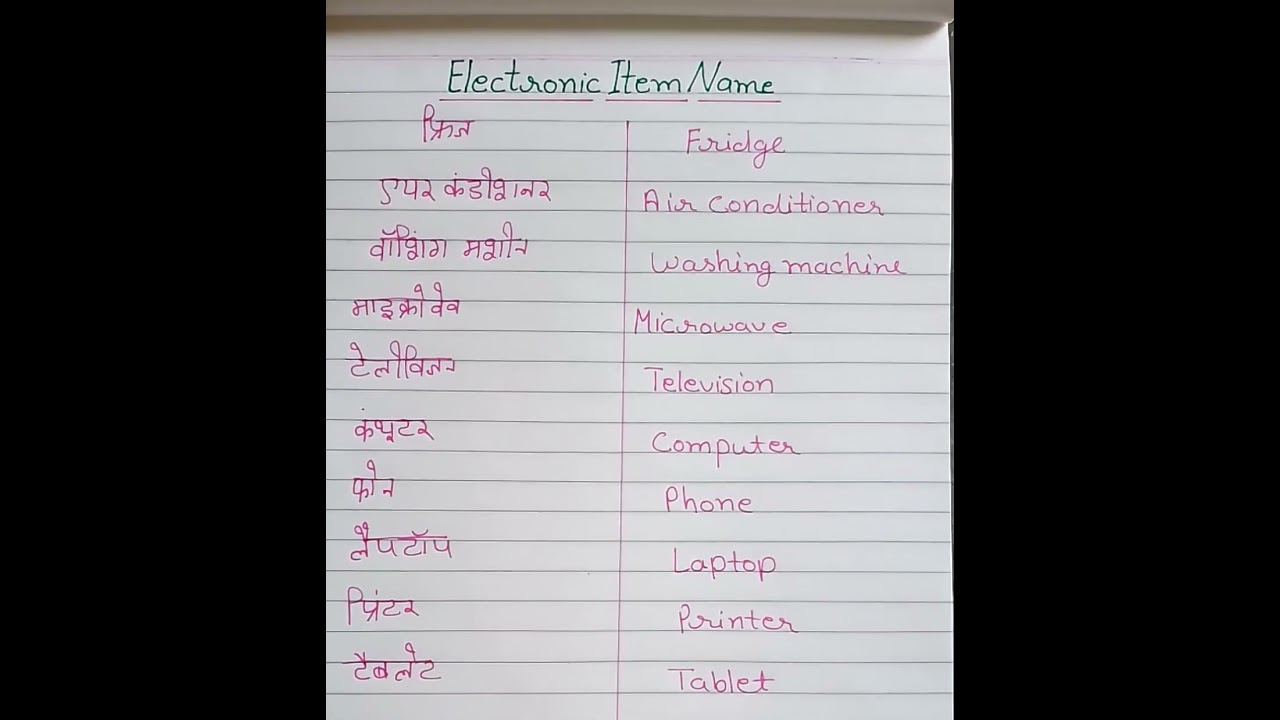 Electronic Item Name
फ्रिज Fridge
एयर कंडीशनर Air Conditioner
वॉशिंग मशीन Washing machine
माइक्रोवेव Microwave
टेलीविजन Television
कंप्यूटर Computer
फोन Phone
लैपटॉप Laptop
प्रिंटर Printer
टैबलेट Tablet